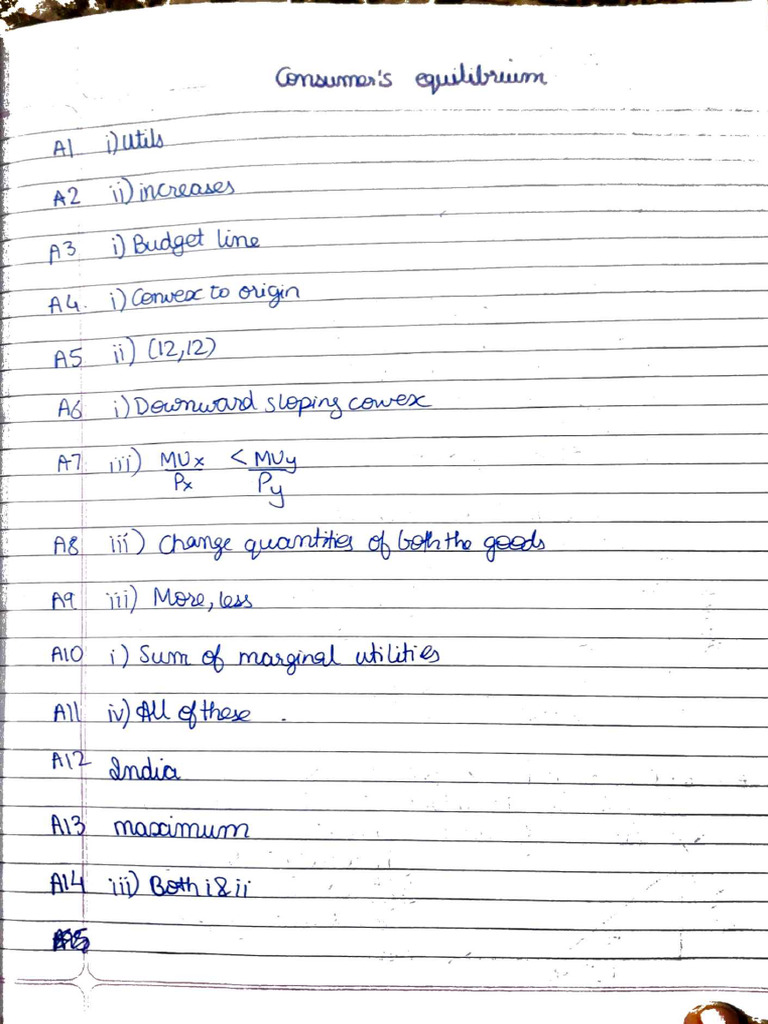 Consumer's equilibrium
A1 i) Utils
A2 ii) increases
A3 i) Budget line
A4. i) Convex to origin
A5 ii) (12,12)
A6 i) Downward sloping convex
A7 iii) MUx/Px < MUy/Py
A8 iii) Change quantities of both the goods
A9 iii) More, less
A10 i) Sum of marginal utilities
A11 iv) All of these .
A12 India
A13 maximum
A14 iii) Both i & ii